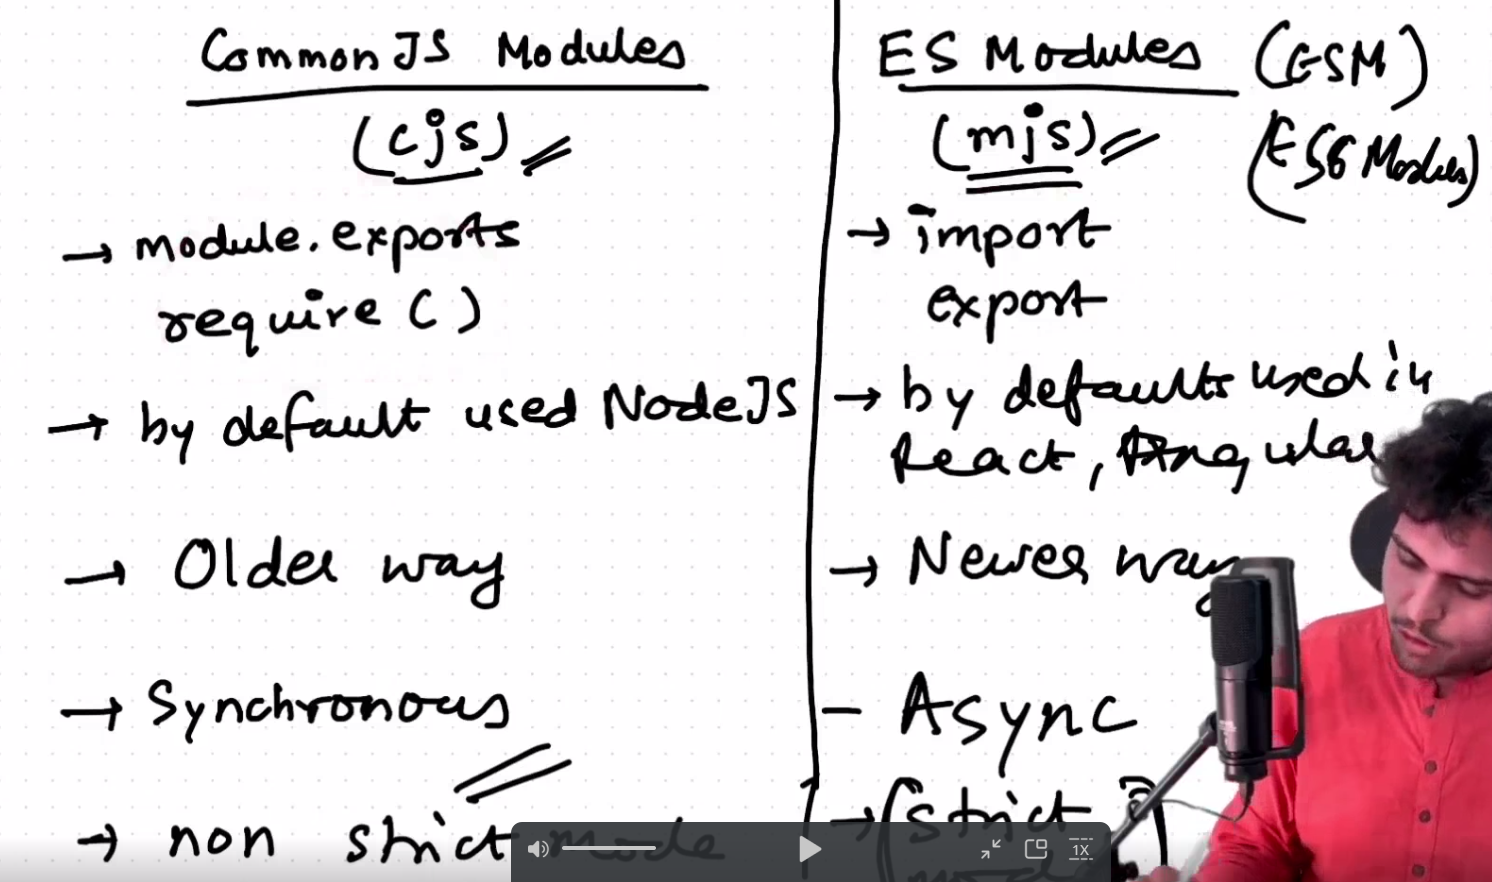 CommonJS Modules
(cjs)
→ module.exports
require ( )
→ by default used NodeJS
→ Older way
→ Synchronous
→ non strict mode
ES Modules (ESM)
(mjs) (ES6 Modules)
→ import
export
→ by defaults used in
React, Angular
→ Newer way
- Async
→ (strict
mode
1X